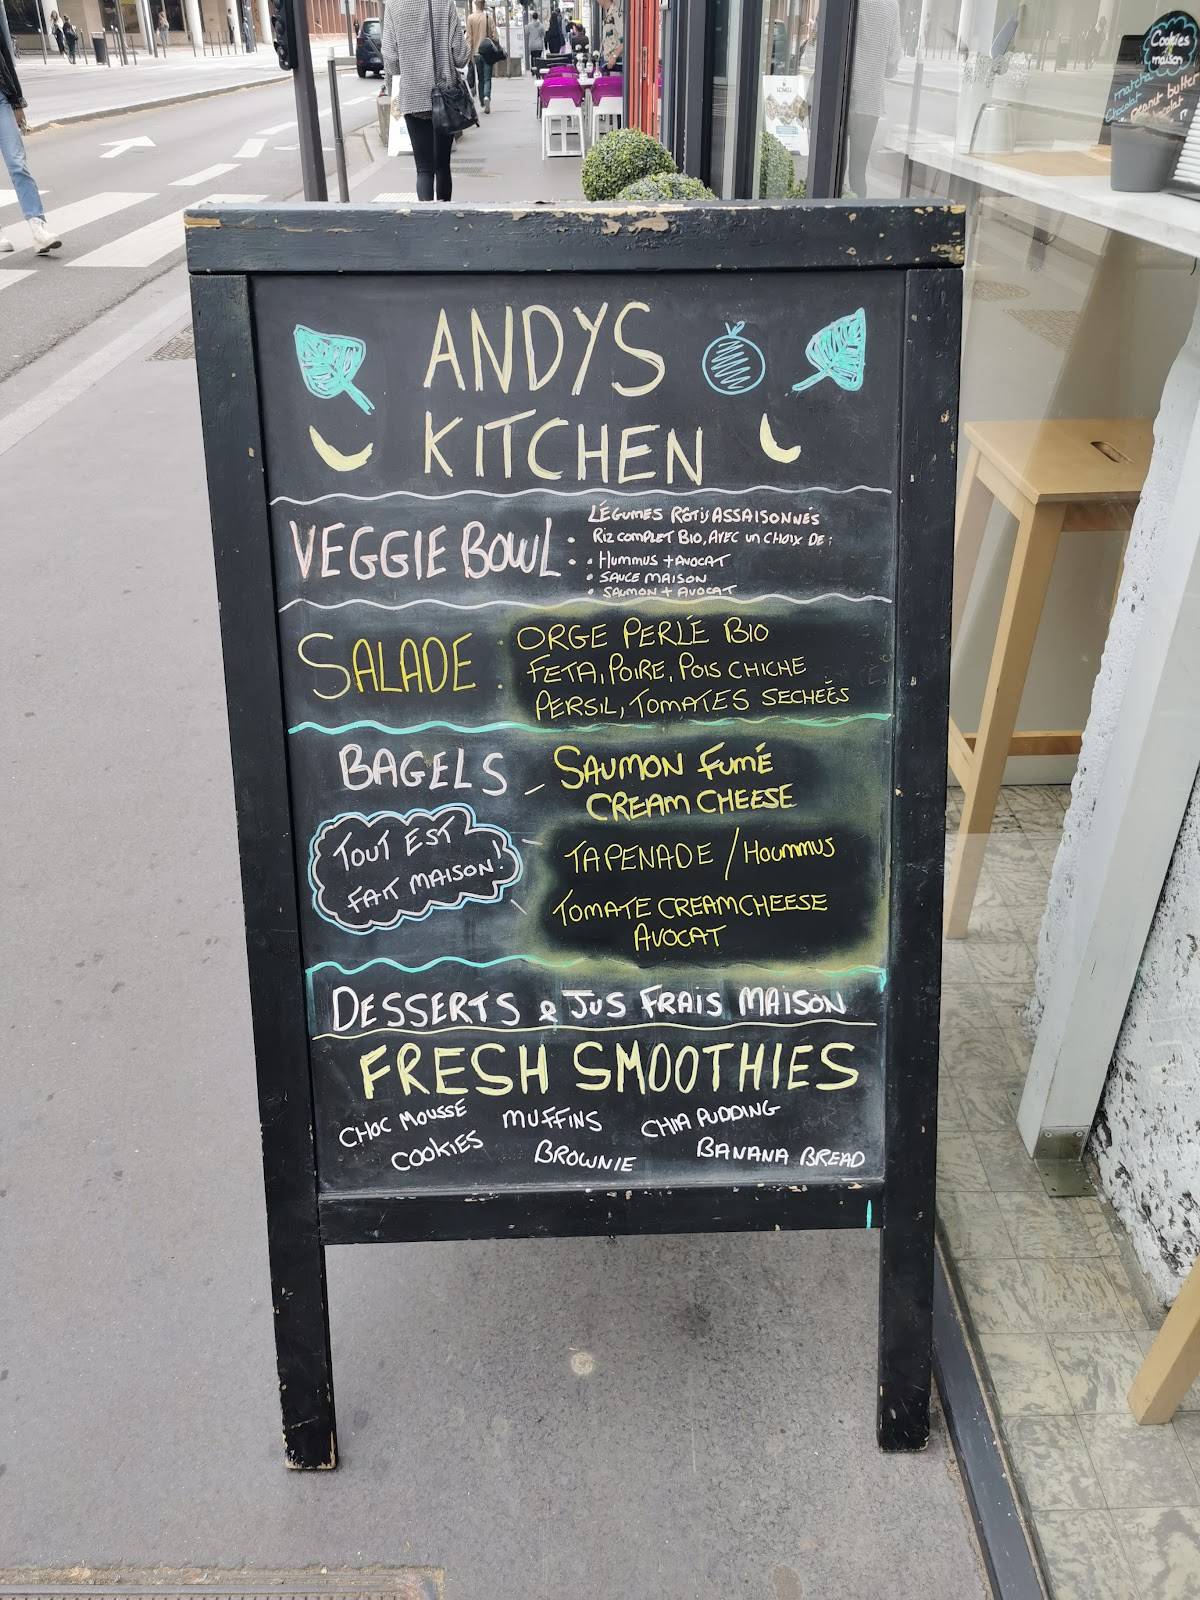 ANDYS
KITCHEN
VEGGIE BOWL
LÉGUMES RÔTIS ASSAISONNÉS
RIZ COMPLET BIO, AVEC UN CHOIX DE :
• HUMMUS + AVOCAT
• SAUCE MAISON
• SAUMON + AVOCAT
SALADE
ORGE PERLÉ BIO
FETA, POIRE, POIS CHICHE
PERSIL, TOMATES SECHÉES
BAGELS
SAUMON FUMÉ
CREAM CHEESE
TOUT EST
FAIT MAISON!
TAPENADE / HOUMMUS
TOMATE CREAMCHEESE
AVOCAT
DESSERTS & JUS FRAIS MAISON
FRESH SMOOTHIES
CHOC MOUSSE MUFFINS CHIA PUDDING
COOKIES BROWNIE BANANA BREAD
Cookies
maison
peanut butter